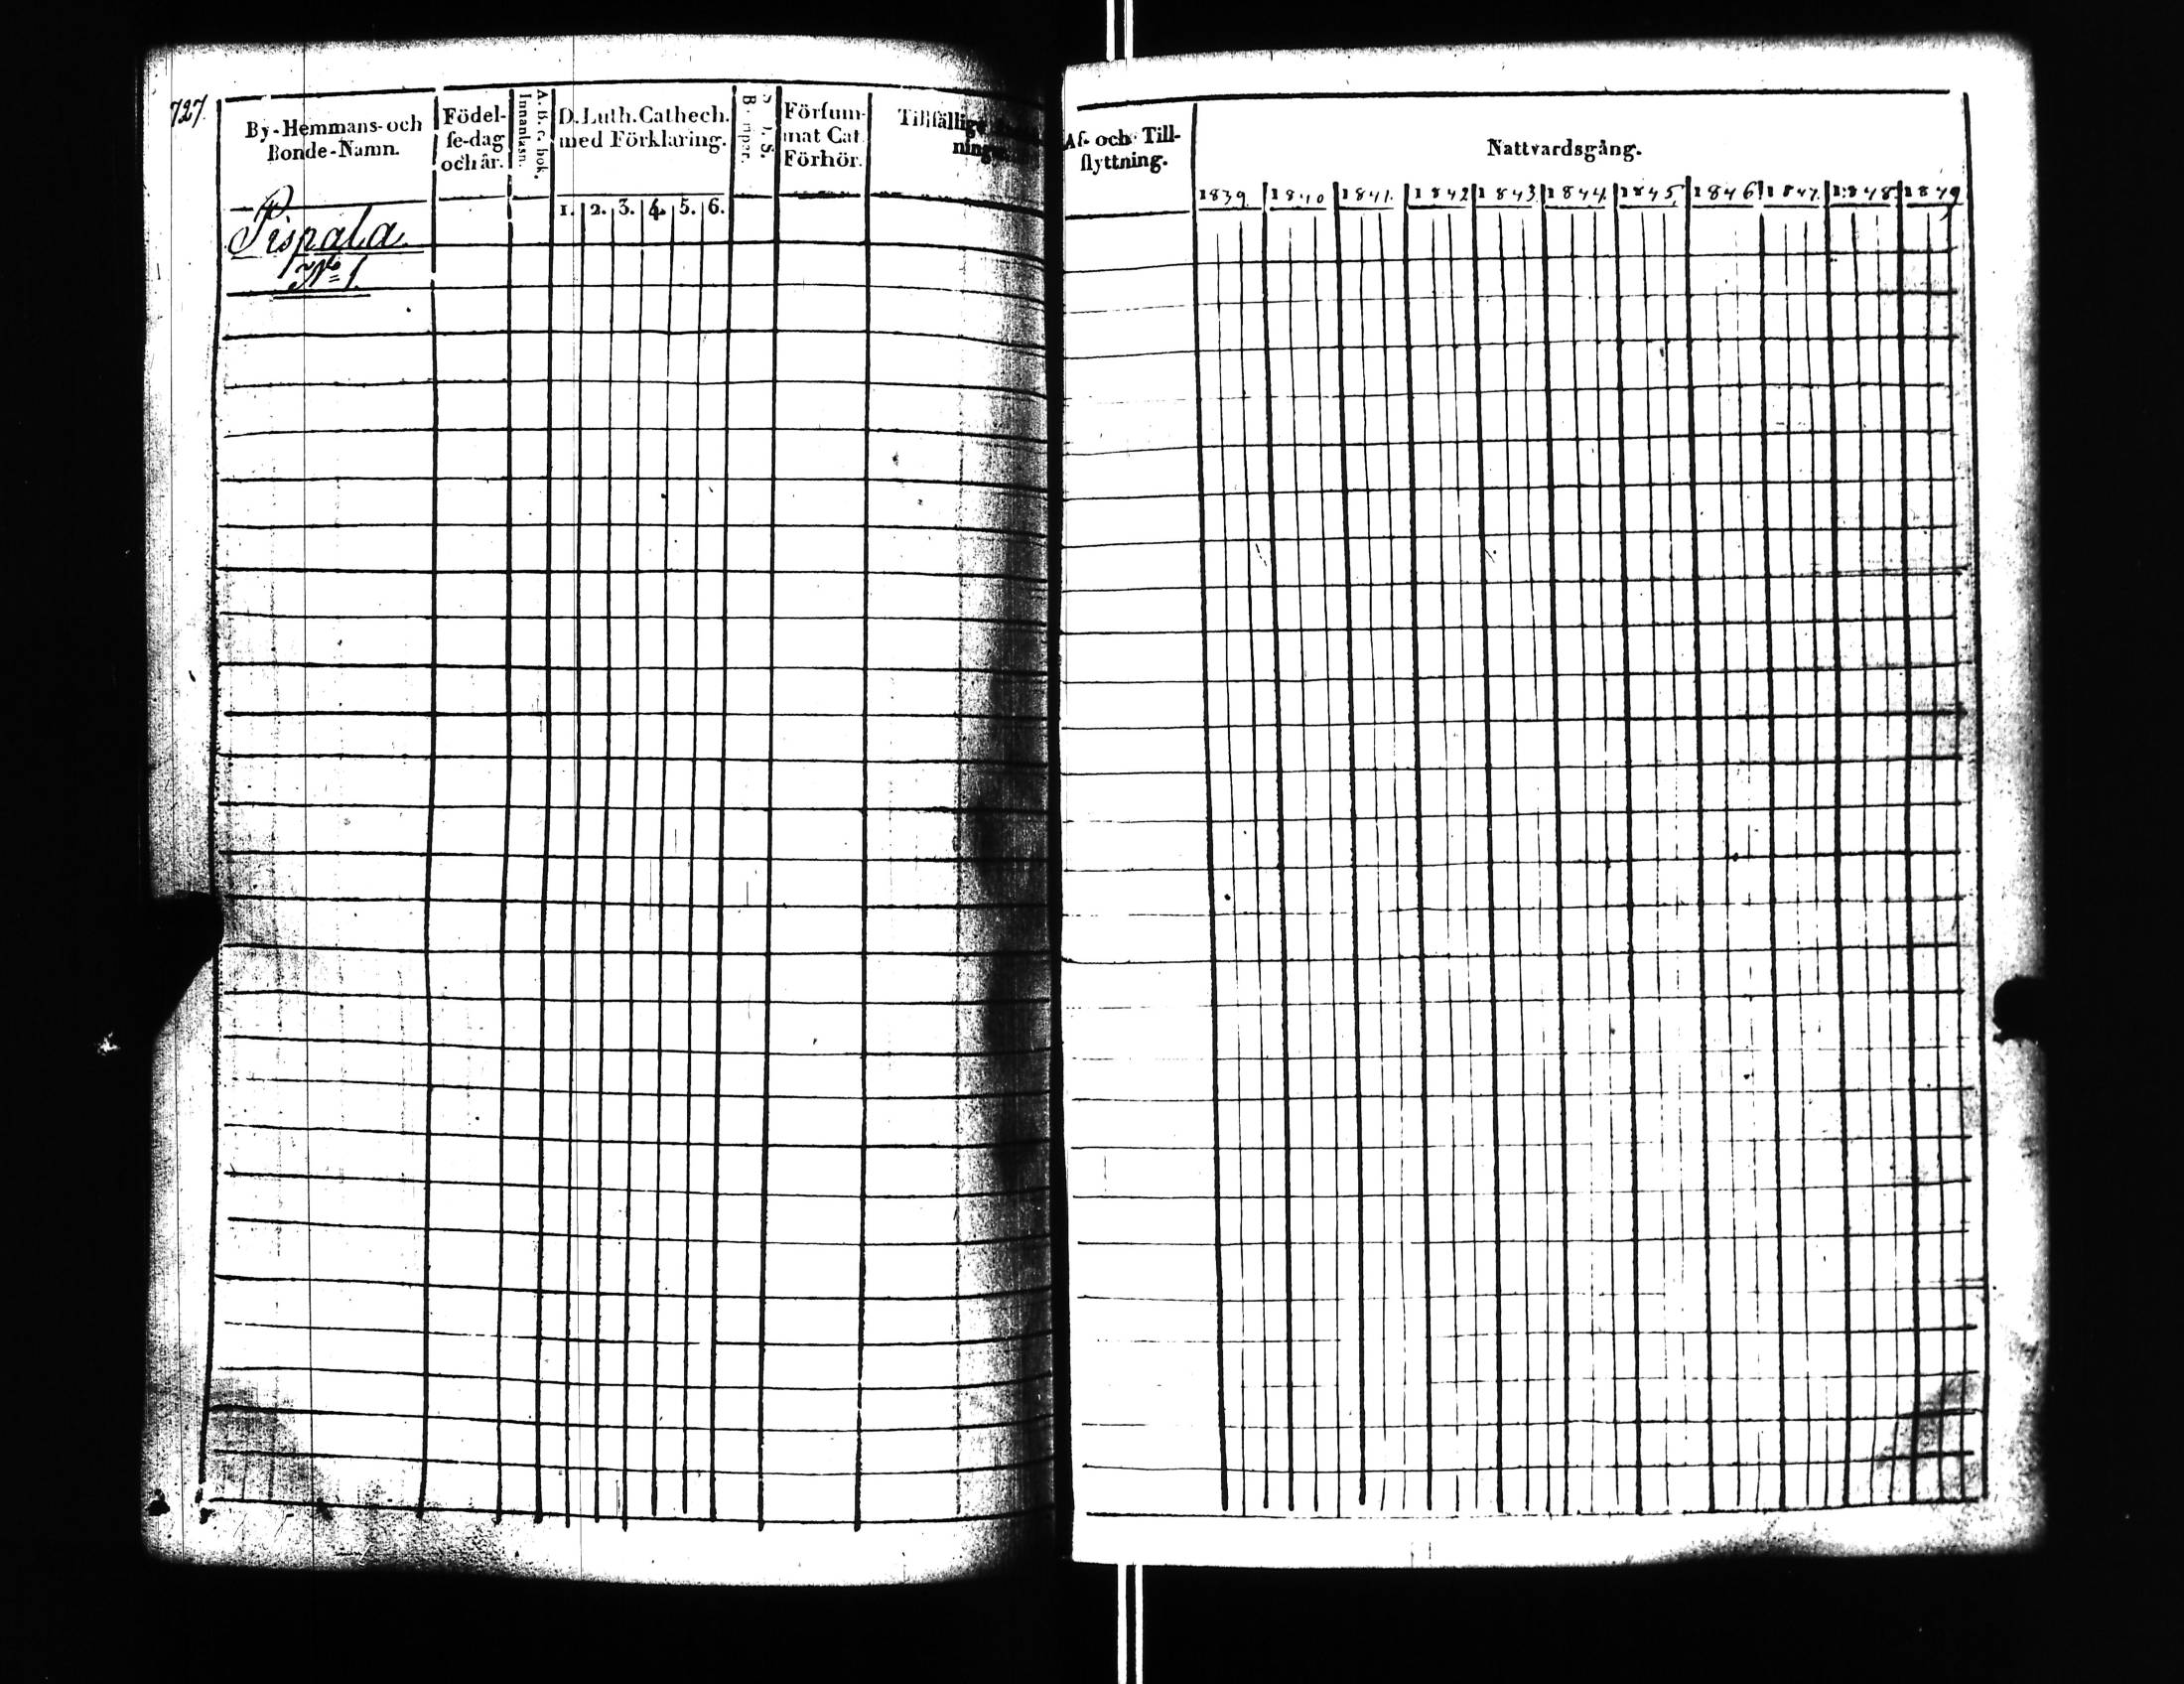 727.
By-Hemmans- och
Bonde-Namn.
Födel-
se-dag
och år.
A. B. C. bok.
Innanläsn.
D. Luth. Cathech.
med Förklaring.
1. 2. 3. 4. 5. 6.
Försum-
mat Cat.
Förhör.
Tillfällige
Pispala
No 1.
Af- och Till-
flyttning.
Nattvardsgång.
1839. 1840 1841. 1842 1843. 1844. 1845 1846 1847. 1848. 1849